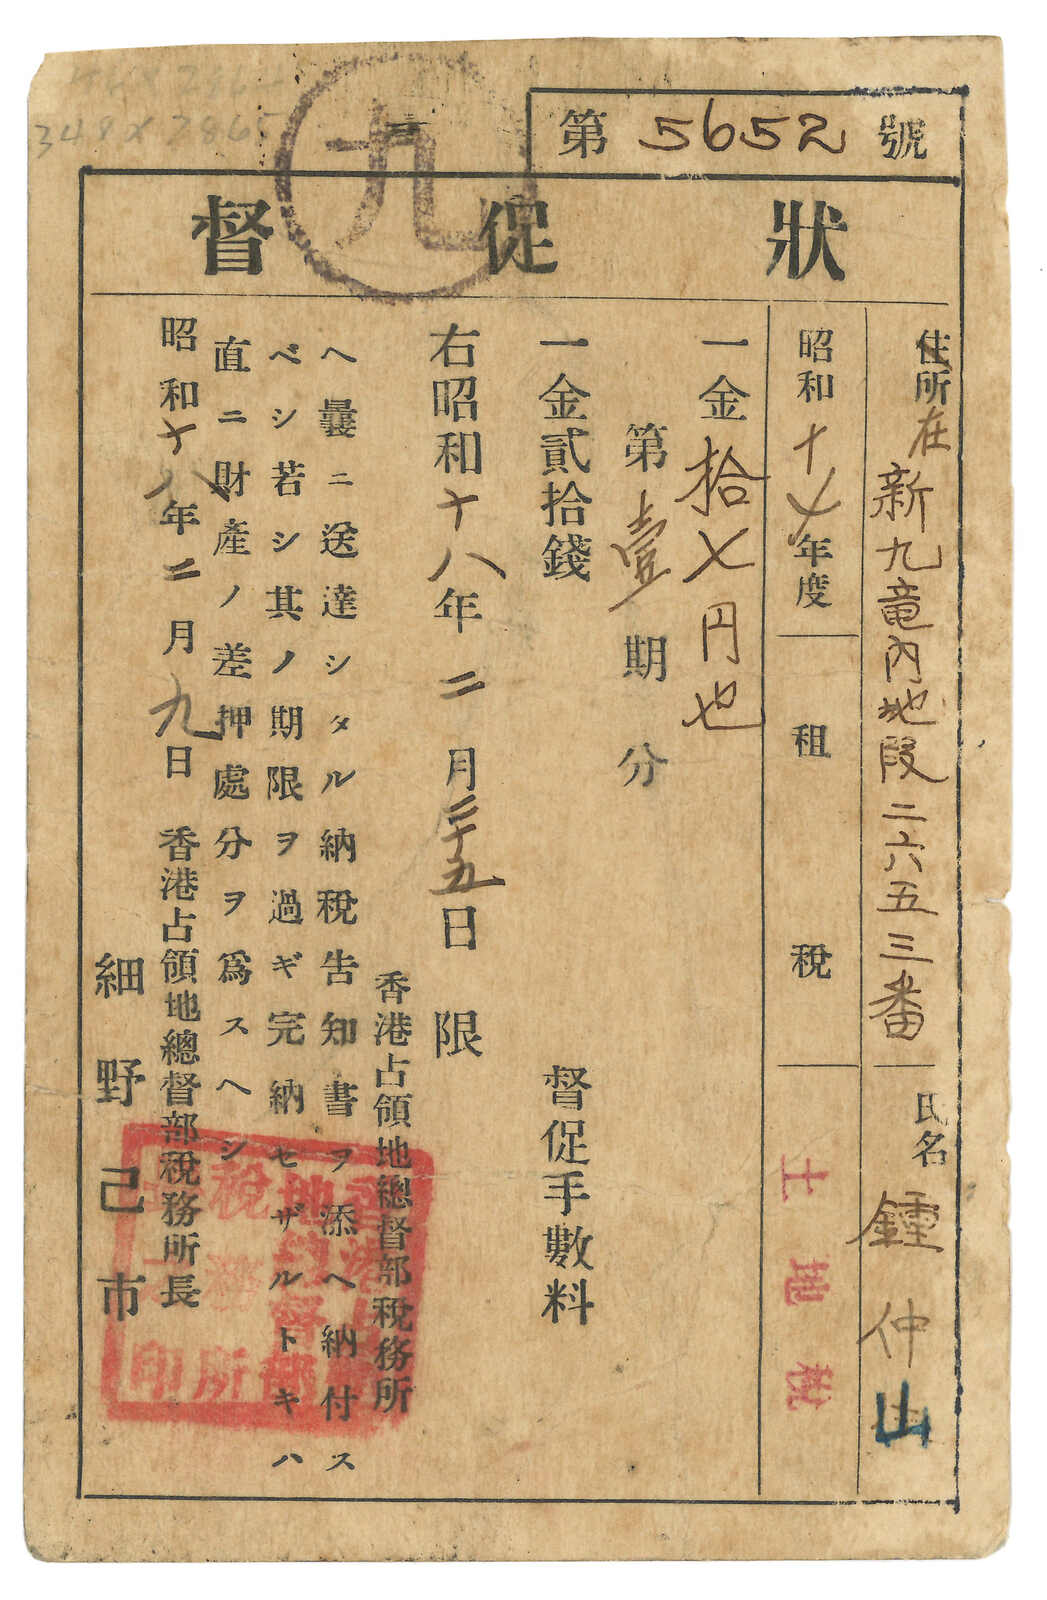 348×7865
九
第 5652 號
督促狀
住所在 新九竜内地段二六五三番 氏名 鍾仲山
昭和十七年度 租稅 土地税
一金拾七円也
第壹期分
一金貳拾錢 督促手數料
右昭和十八年二月二十五日限
香港占領地總督部稅務所
ヘ曩ニ送達シタル納稅告知書ヲ添ヘ納付ス
ベシ若シ其ノ期限ヲ過ギ完納セザルトキハ
直ニ財產ノ差押處分ヲ爲スヘシ
昭和十八年二月九日 香港占領地總督部稅務所長
細野己市